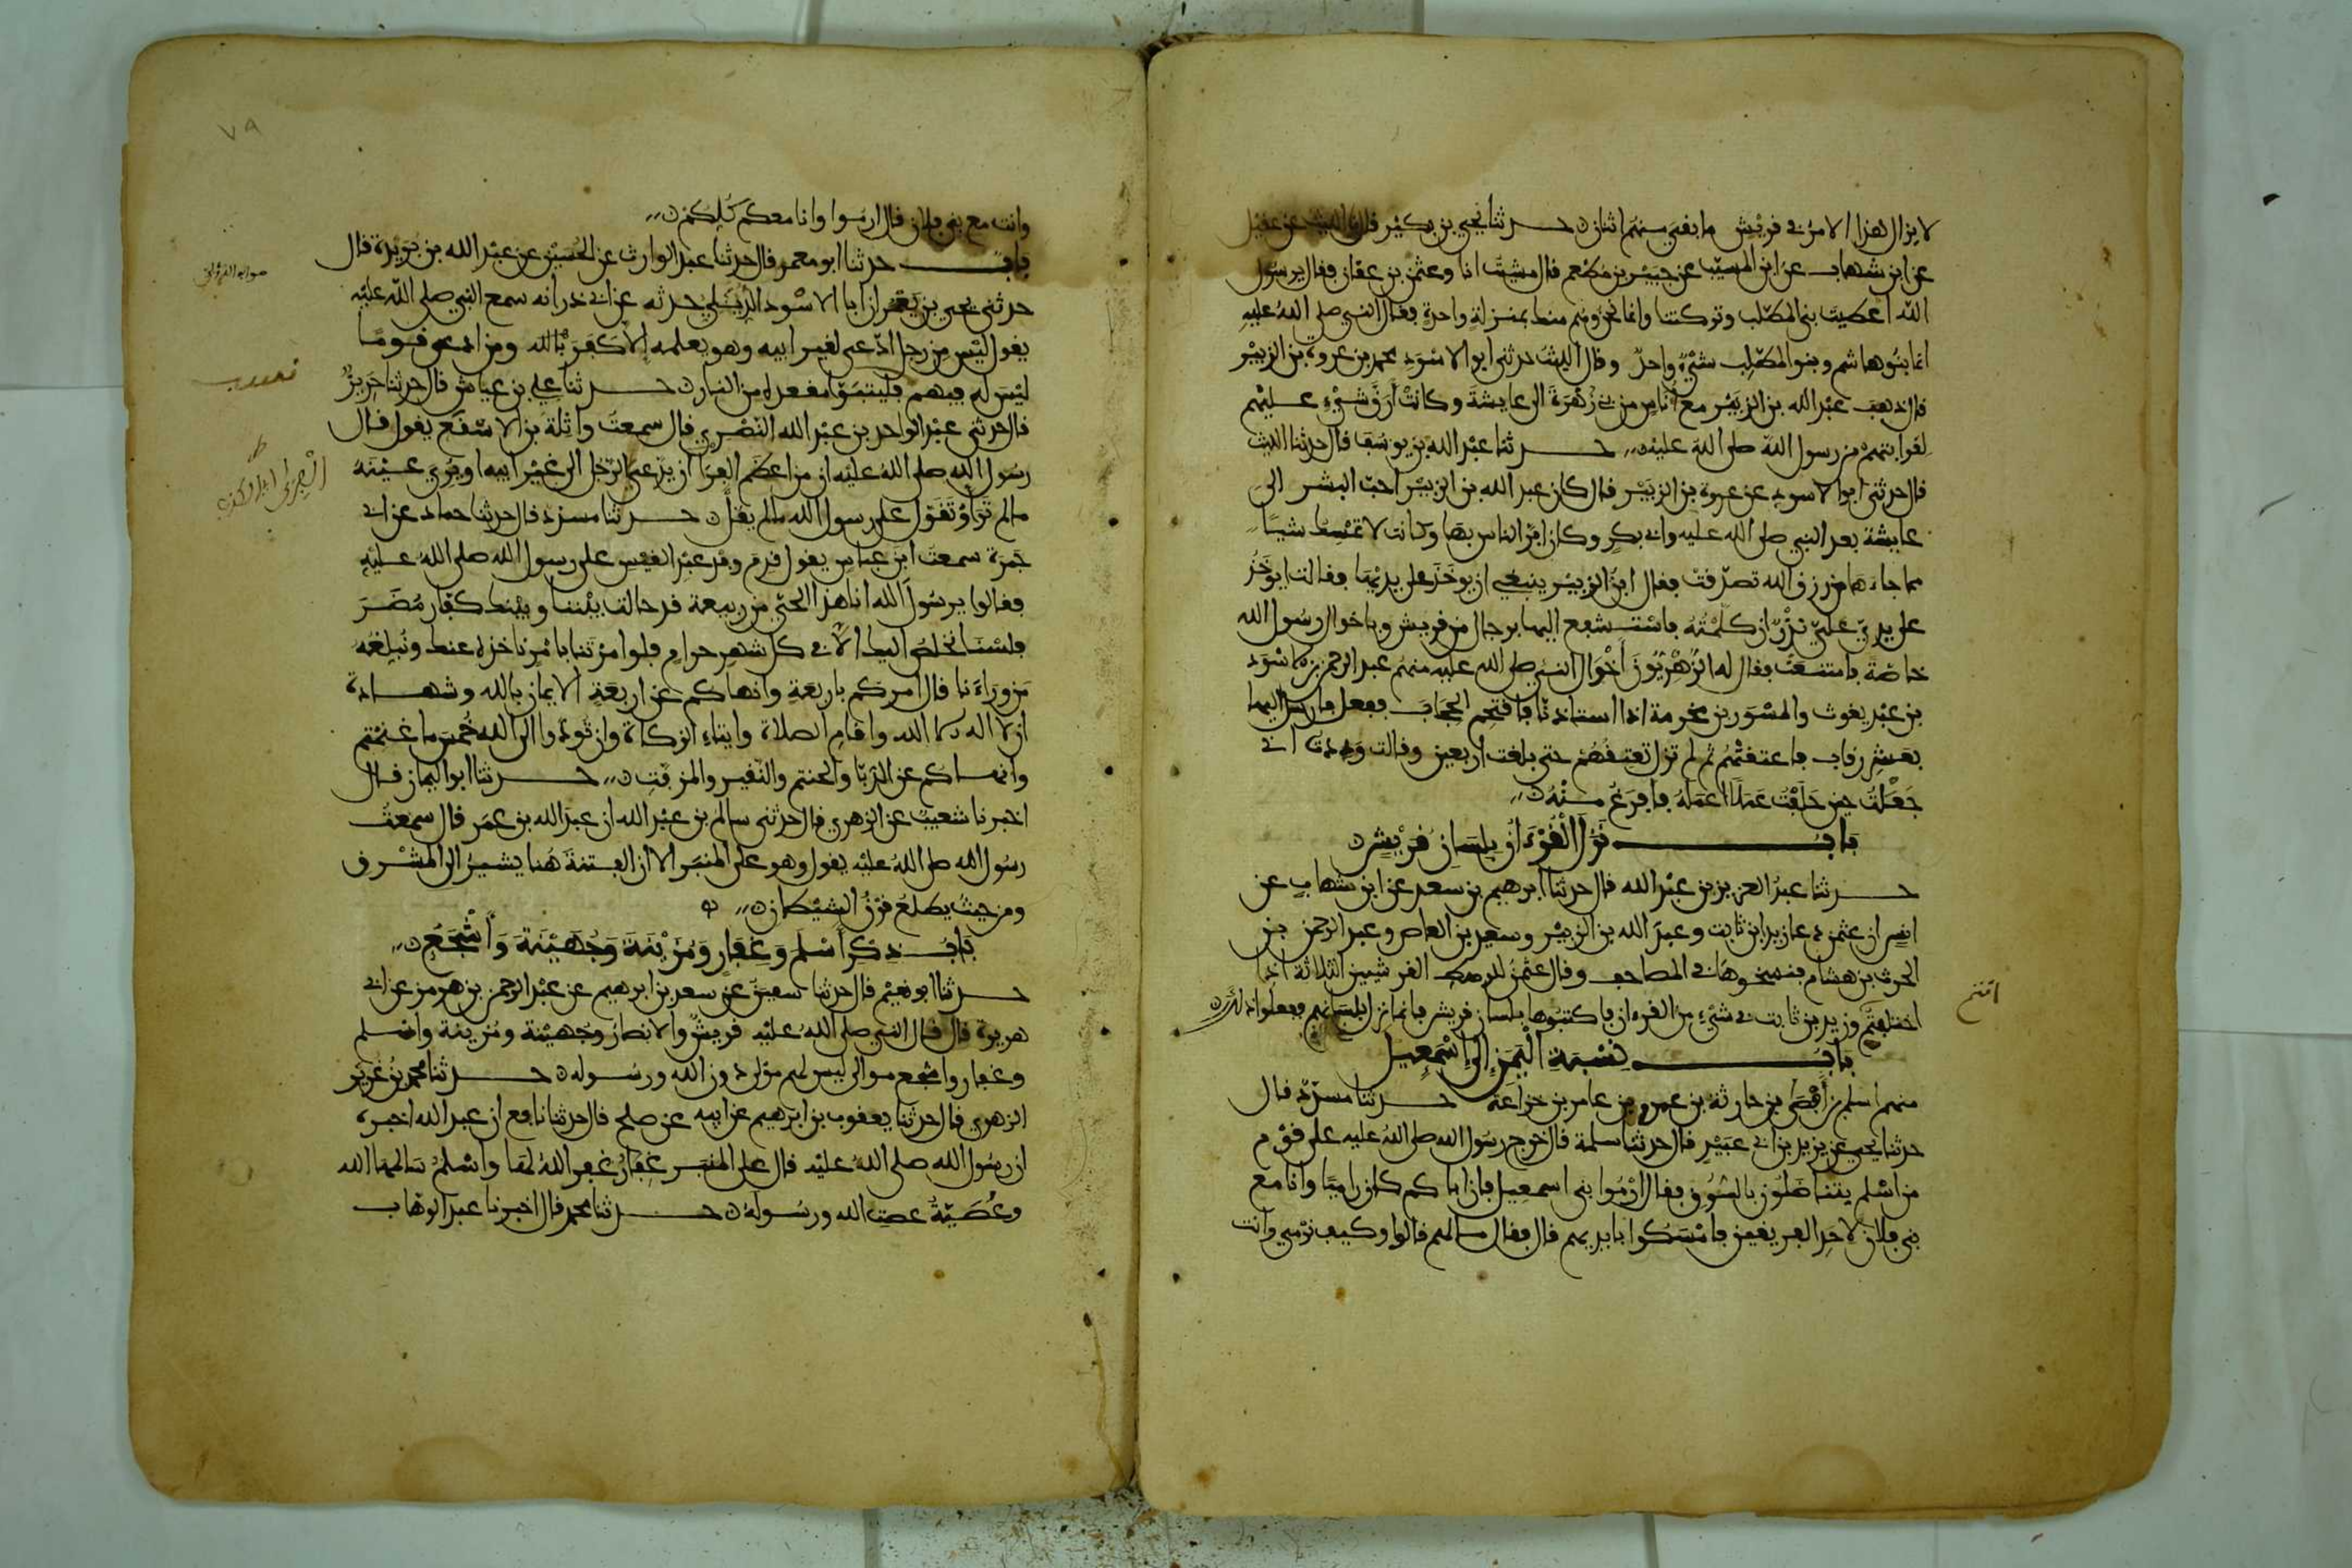 لا يزال هذا الامر في قريش ما بقي منهم اثنان حدثنا يحيى بن بكير قال نا الليث عن عقيل
عن ابن شهاب عن ابن المسيب عن جبير بن مطعم قال مشيت انا وعثمن بن عفان فقال يرسول
الله اعطيت بني المطلب وتركتنا وانما نحن وهم منك بمنزلة واحدة فقال النبي صلى الله عليه
انما بنو هاشم وبنو المطلب شيء واحد وقال الليث حدثني ابو الاسود محمد بن عروة بن الزبير
قال ذهب عبد الله بن الزبير مع اناس من بني زهرة الى عايشة وكانت ارق شيء عليهم
لقرابتهم من رسول الله صلى الله عليه حدثنا عبد الله بن يوسف قال حدثنا الليث
قال حدثني ابو الاسود عن عروة بن الزبير قال كان عبد الله بن الزبير احب البشر الى
عايشة بعد النبي صلى الله عليه وابي بكر وكان ابر الناس بها وكانت لا تمسك شيئا
مما جاءها من رزق الله تصدقت فقال ابن الزبير ينبغي ان يوخذ على يديها فقالت ايوخذ
على يدي علي نذر ان كلمته فاستشفع اليها برجال من قريش وباخوال رسول الله
خاصة فامتنعت فقال له الزهريون اخوال النبي صلى الله عليه منهم عبد الرحمن بن الاسود
بن عبد يغوث والمسور بن مخرمة اذا استاذنا فاقتحم الحجاب ففعل فارسل اليها
بعشر رقاب فاعتقتهم ثم لم تزل تعتقهم حتى بلغت اربعين وقالت وددت اني
جعلت حين حلفت عملا اعمله فافرغ منه
باب نزل القرءان بلسان قريش
حدثنا عبد العزيز بن عبد الله قال حدثنا ابرهيم بن سعد عن ابن شهاب عن
انس ان عثمن دعا زيد ابن ثابت وعبد الله بن الزبير وسعيد بن العاص وعبد الرحمن بن
الحرث بن هشام فنسخوها في المصاحف وقال عثمن للرهط القرشيين الثلاثة اذا
اختلفتم وزيد بن ثابت في شيء من القرءان فاكتبوها بلسان قريش فانما نزل بلسانهم ففعلوا ذلك
انتم
باب نسبة اليمن الى اسمعيل
منهم اسلم بن افصى بن حارثة بن عمرو بن عامر بن خزاعة حدثنا مسدد قال
حدثنا يحيى عن يزيد بن ابي عبيد قال حدثنا سلمة قال خرج رسول الله صلى الله عليه على قوم
من اسلم يتناضلون بالسوق فقال ارموا بني اسمعيل فان اباكم كان راميا وانا مع
بني فلان لاحد الفريقين فامسكوا بايديهم قال فقال ما لهم قالوا وكيف نرمي وانت
٧٩
وانت مع بني فلان قال ارموا وانا معكم كلكم
باب حدثنا ابو معمر قال حدثنا عبد الوارث عن الحسين عن عبد الله بن بريدة قال
حدثني يحيى بن يعمر ان ابا الاسود الديلي حدثه عن ابي ذر انه سمع النبي صلى الله عليه
يقول ليس من رجل ادعى لغير ابيه وهو يعلمه الا كفر بالله ومن ادعى قوما
ليس له فيهم فليتبوا مقعده من النار حدثنا علي بن عياش قال حدثنا حريز
قال حدثني عبد الواحد بن عبد الله النصري قال سمعت واثلة بن الاسقع يقول قال
رسول الله صلى الله عليه ان من اعظم الفرا ان يدعي الرجل الى غير ابيه او يري عينه
ما لم تر او تقول على رسول الله ما لم يقل حدثنا مسدد قال حدثنا حماد عن ابي
جمرة سمعت ابن عباس يقول قدم وفد عبد القيس على رسول الله صلى الله عليه
فقالوا يرسول الله انا هذا الحي من ربيعة قد حالت بيننا وبينك كفار مضر
فلسنا نخلص اليك الا في كل شهر حرام فلو امرتنا بامر ناخذه عنك ونبلغه
من وراءنا قال امركم باربعة وانهاكم عن اربعة الايمان بالله وشهادة
ان لا اله الا الله واقام الصلاة وايتاء الزكاة وان تودوا الى الله خمس ما غنمتم
وانهاكم عن الدبا والحنتم والنقير والمزفت حدثنا ابو اليمان قال
اخبرنا شعيب عن الزهري قال حدثني سالم بن عبد الله ان عبد الله بن عمر قال سمعت
رسول الله صلى الله عليه يقول وهو على المنبر الا ان الفتنة هنا يشير الى المشرق
ومن حيث يطلع قرن الشيطان
باب ذكر اسلم وغفار ومزينة وجهينة واشجع
حدثنا ابو نعيم قال حدثنا سفين عن سعد بن ابرهيم عن عبد الرحمن بن هرمز عن ابي
هريرة قال قال النبي صلى الله عليه قريش والانصار وجهينة ومزينة واسلم
وغفار واشجع موالي ليس لهم مولى دون الله ورسوله حدثنا محمد بن غرير
الزهري قال حدثنا يعقوب بن ابرهيم عن ابيه عن صلح قال حدثنا نافع ان عبد الله اخبره
ان رسول الله صلى الله عليه قال على المنبر غفار غفر الله لها واسلم سالمها الله
وعصية عصت الله ورسوله حدثنا محمد قال اخبرنا عبد الوهاب